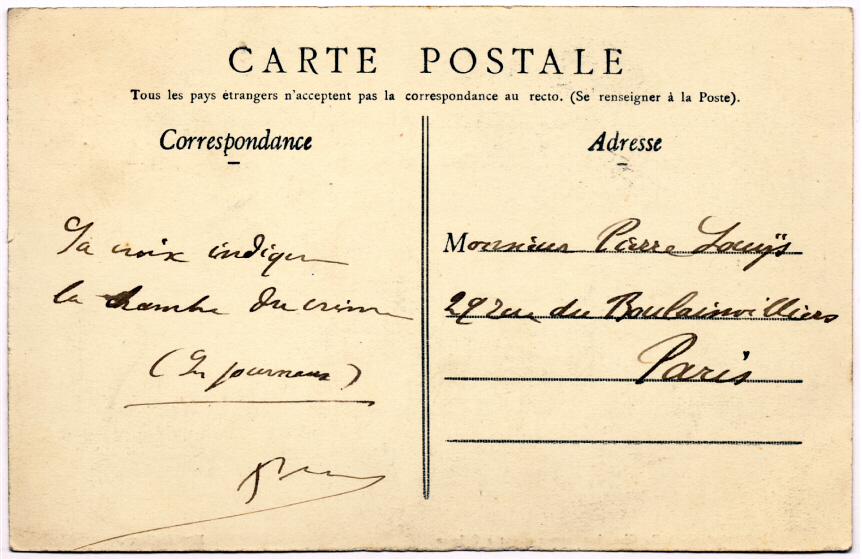 CARTE POSTALE
Tous les pays étrangers n'acceptent pas la correspondance au recto. (Se renseigner à la Poste).
Correspondance
la croix indique
la chambre du crime
( journaux)
Adresse
Monsieur Pierre Louÿs
29 rue du Boulainvilliers
Paris